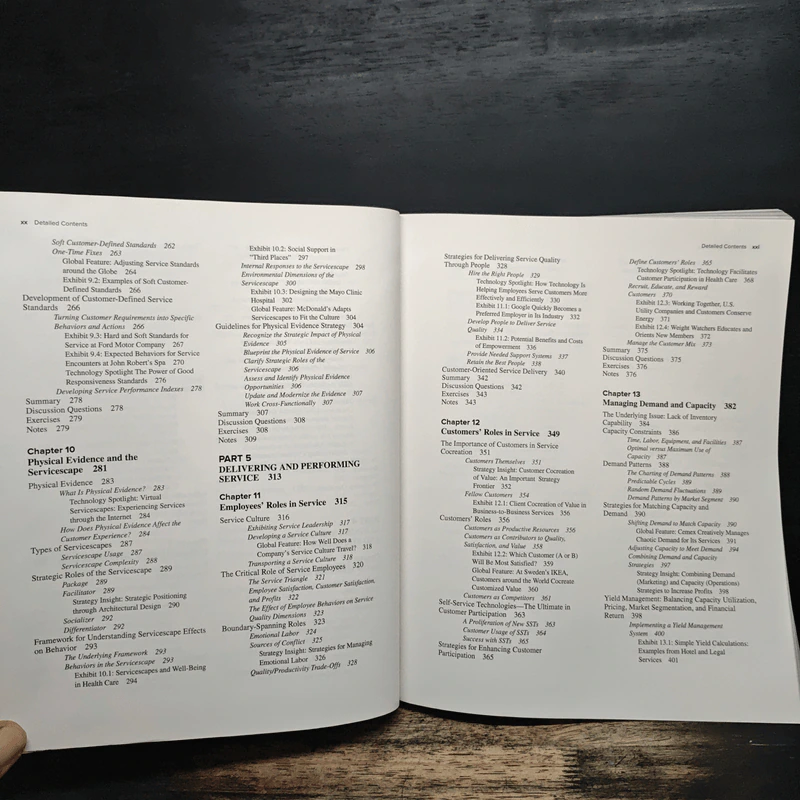 xx Detailed Contents
Soft Customer-Defined Standards 262
One-Time Fixes 263
Global Feature: Adjusting Service Standards
around the Globe 264
Exhibit 9.2: Examples of Soft Customer-
Defined Standards 266
Development of Customer-Defined Service
Standards 266
Turning Customer Requirements into Specific
Behaviors and Actions 266
Exhibit 9.3: Hard and Soft Standards for
Service at Ford Motor Company 267
Exhibit 9.4: Expected Behaviors for Service
Encounters at John Robert's Spa 270
Technology Spotlight The Power of Good
Responsiveness Standards 276
Developing Service Performance Indexes 278
Summary 278
Discussion Questions 278
Exercises 279
Notes 279
Chapter 10
Physical Evidence and the
Servicescape 281
Physical Evidence 283
What Is Physical Evidence? 283
Technology Spotlight: Virtual
Servicescapes: Experiencing Services
through the Internet 284
How Does Physical Evidence Affect the
Customer Experience? 284
Types of Servicescapes 287
Servicescape Usage 287
Servicescape Complexity 288
Strategic Roles of the Servicescape 289
Package 289
Facilitator 289
Strategy Insight: Strategic Positioning
through Architectural Design 290
Socializer 292
Differentiator 292
Framework for Understanding Servicescape Effects
on Behavior 293
The Underlying Framework 293
Behaviors in the Servicescape 293
Exhibit 10.1: Servicescapes and Well-Being
in Health Care 294
Exhibit 10.2: Social Support in
"Third Places" 297
Internal Responses to the Servicescape 298
Environmental Dimensions of the
Servicescape 300
Exhibit 10.3: Designing the Mayo Clinic
Hospital 302
Global Feature: McDonald's Adapts
Servicescapes to Fit the Culture 304
Guidelines for Physical Evidence Strategy 304
Recognize the Strategic Impact of Physical
Evidence 305
Blueprint the Physical Evidence of Service 306
Clarify Strategic Roles of the
Servicescape 306
Assess and Identify Physical Evidence
Opportunities 306
Update and Modernize the Evidence 307
Work Cross-Functionally 307
Summary 307
Discussion Questions 308
Exercises 308
Notes 309
PART 5
DELIVERING AND PERFORMING
SERVICE 313
Chapter 11
Employees' Roles in Service 315
Service Culture 316
Exhibiting Service Leadership 317
Developing a Service Culture 317
Global Feature: How Well Does a
Company's Service Culture Travel? 318
Transporting a Service Culture 318
The Critical Role of Service Employees 320
The Service Triangle 321
Employee Satisfaction, Customer Satisfaction,
and Profits 322
The Effect of Employee Behaviors on Service
Quality Dimensions 323
Boundary-Spanning Roles 323
Emotional Labor 324
Sources of Conflict 325
Strategy Insight: Strategies for Managing
Emotional Labor 326
Quality/Productivity Trade-Offs 328
Detailed Contents xxi
Strategies for Delivering Service Quality
Through People 328
Hire the Right People 329
Technology Spotlight: How Technology Is
Helping Employees Serve Customers More
Effectively and Efficiently 330
Exhibit 11.1: Google Quickly Becomes a
Preferred Employer in Its Industry 332
Develop People to Deliver Service
Quality 334
Exhibit 11.2: Potential Benefits and Costs
of Empowerment 336
Provide Needed Support Systems 337
Retain the Best People 338
Customer-Oriented Service Delivery 340
Summary 342
Discussion Questions 342
Exercises 343
Notes 343
Chapter 12
Customers' Roles in Service 349
The Importance of Customers in Service
Cocreation 351
Customers Themselves 351
Strategy Insight: Customer Cocreation
of Value: An Important Strategy
Frontier 352
Fellow Customers 354
Exhibit 12.1: Client Cocreation of Value in
Business-to-Business Services 356
Customers' Roles 356
Customers as Productive Resources 356
Customers as Contributors to Quality,
Satisfaction, and Value 358
Exhibit 12.2: Which Customer (A or B)
Will Be Most Satisfied? 359
Global Feature: At Sweden's IKEA,
Customers around the World Cocreate
Customized Value 360
Customers as Competitors 361
Self-Service Technologies—The Ultimate in
Customer Participation 363
A Proliferation of New SSTs 363
Customer Usage of SSTs 364
Success with SSTs 365
Strategies for Enhancing Customer
Participation 365
Define Customers' Roles 365
Technology Spotlight: Technology Facilitates
Customer Participation in Health Care 368
Recruit, Educate, and Reward
Customers 370
Exhibit 12.3: Working Together, U.S.
Utility Companies and Customers Conserve
Energy 371
Exhibit 12.4: Weight Watchers Educates and
Orients New Members 372
Manage the Customer Mix 373
Summary 375
Discussion Questions 375
Exercises 376
Notes 376
Chapter 13
Managing Demand and Capacity 382
The Underlying Issue: Lack of Inventory
Capability 384
Capacity Constraints 386
Time, Labor, Equipment, and Facilities 387
Optimal versus Maximum Use of
Capacity 387
Demand Patterns 388
The Charting of Demand Patterns 388
Predictable Cycles 389
Random Demand Fluctuations 389
Demand Patterns by Market Segment 390
Strategies for Matching Capacity and
Demand 390
Shifting Demand to Match Capacity 390
Global Feature: Cemex Creatively Manages
Chaotic Demand for Its Services 391
Adjusting Capacity to Meet Demand 394
Combining Demand and Capacity
Strategies 397
Strategy Insight: Combining Demand
(Marketing) and Capacity (Operations)
Strategies to Increase Profits 398
Yield Management: Balancing Capacity Utilization,
Pricing, Market Segmentation, and Financial
Return 398
Implementing a Yield Management
System 400
Exhibit 13.1: Simple Yield Calculations:
Examples from Hotel and Legal
Services 401